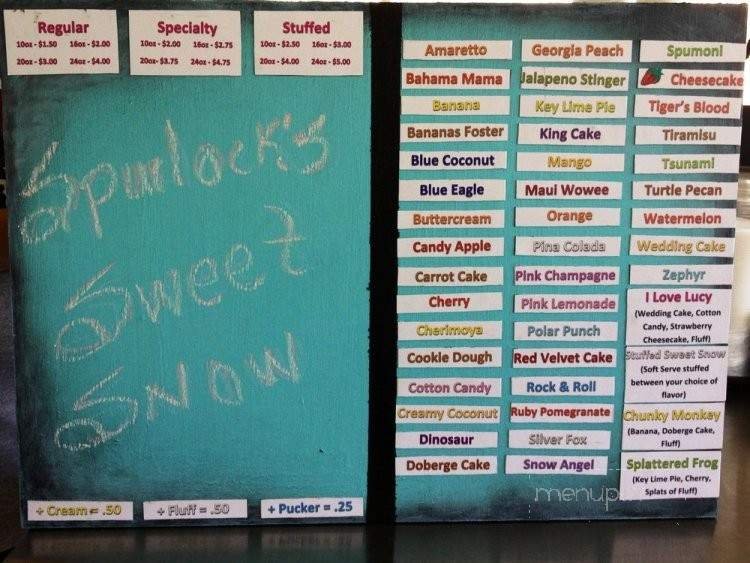 Regular
10oz - $1.50 16oz - $2.00
20oz - $3.00 24oz - $4.00
Specialty
10oz - $2.00 16oz - $2.75
20oz- $3.75 24oz - $4.75
Stuffed
10oz - $2.50 16oz - $3.00
20oz - $4.00 24oz - $5.00
Spurlock's
Sweet
Snow
+ Cream = .50
+ Fluff = .50
+ Pucker = .25
Amaretto
Bahama Mama
Banana
Bananas Foster
Blue Coconut
Blue Eagle
Buttercream
Candy Apple
Carrot Cake
Cherry
Cherimoya
Cookie Dough
Cotton Candy
Creamy Coconut
Dinosaur
Doberge Cake
Georgia Peach
Jalapeno Stinger
Key Lime Pie
King Cake
Mango
Maui Wowee
Orange
Pina Colada
Pink Champagne
Pink Lemonade
Polar Punch
Red Velvet Cake
Rock & Roll
Ruby Pomegranate
Silver Fox
Snow Angel
Spumoni
Cheesecake
Tiger's Blood
Tiramisu
Tsunami
Turtle Pecan
Watermelon
Wedding Cake
Zephyr
I Love Lucy
(Wedding Cake, Cotton
Candy, Strawberry
Cheesecake, Fluff)
Stuffed Sweet Snow
(Soft Serve stuffed
between your choice of
flavor)
Chunky Monkey
(Banana, Doberge Cake,
Fluff)
Splattered Frog
(Key Lime Pie, Cherry,
Splats of Fluff)